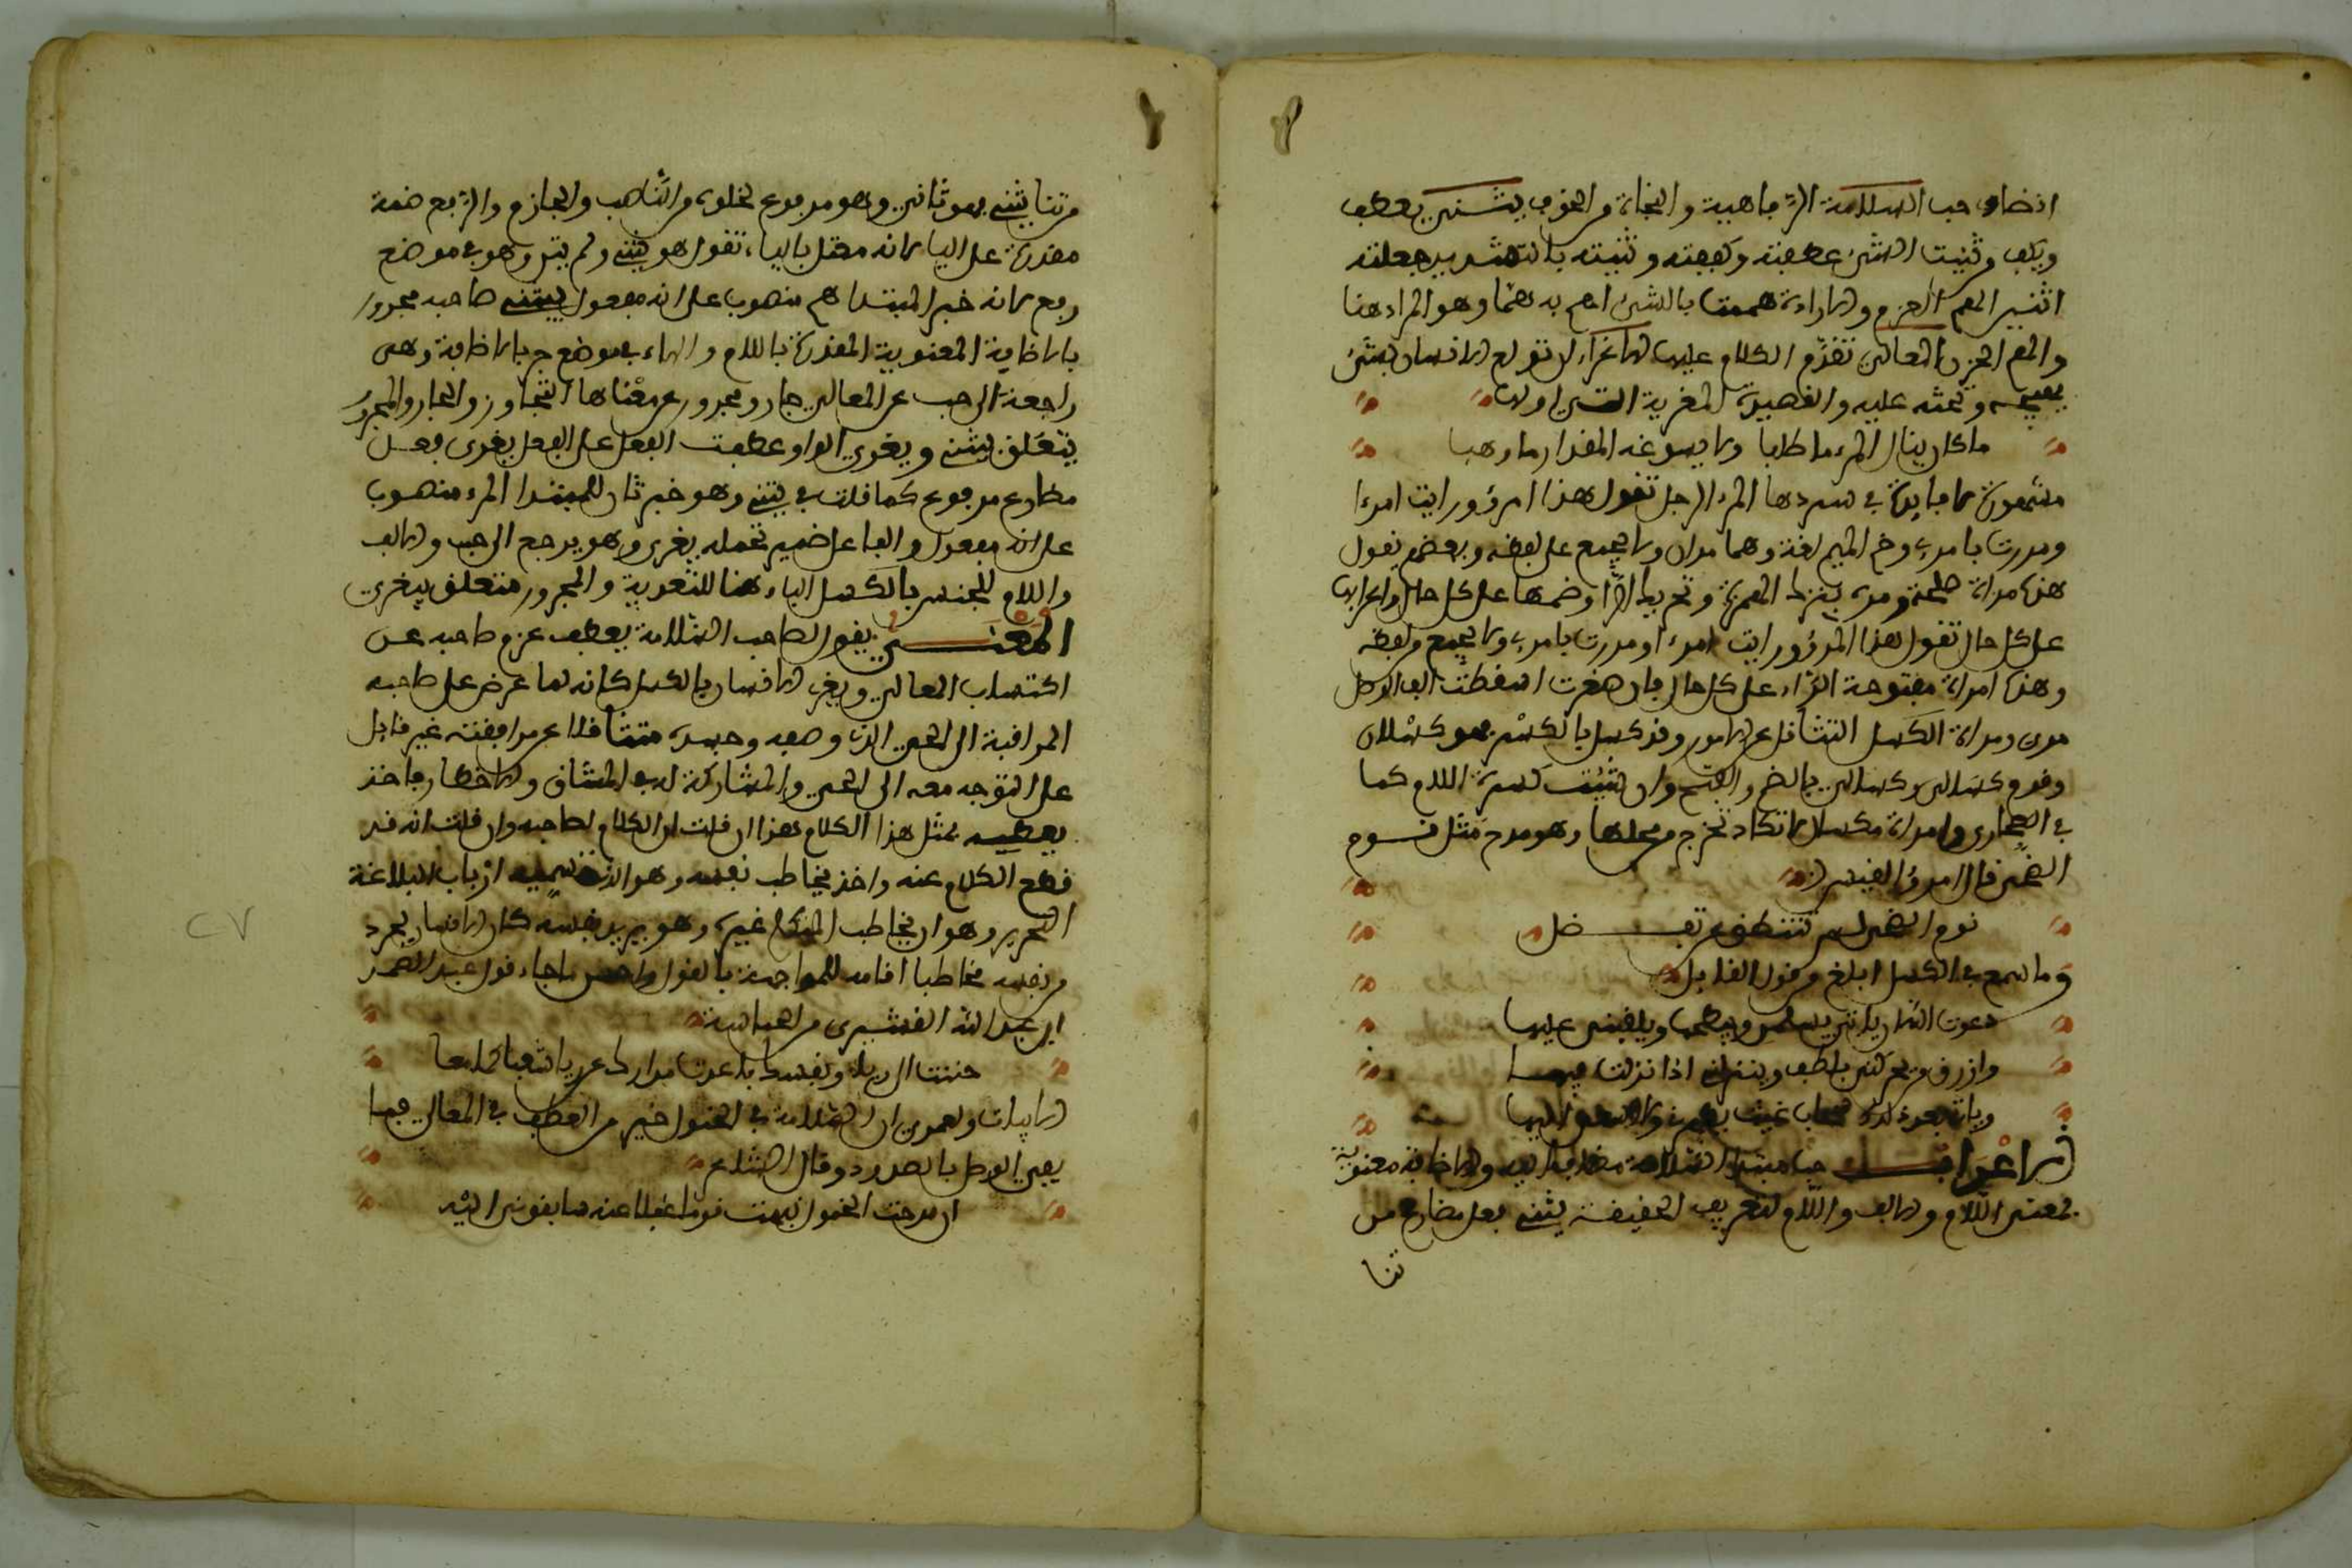 حب السلامة الرفاهية والنجاة من الخوف يثني يعطف
ويكف وثنيت الشيء عطفته وكففته وثنيته بالتشديد جعلته
اثنين الهم العزم والارادة هممت بالشيء اهم به هما وهو المراد هنا
والهم الحزن المعالي تقدم الكلام عليها الاغراء لان تولع الانسان بشيء
وتحثه عليه والقصيدة المغربة التي اولها
ما كل ينال المرء ما طلبا ولا يسوغه المقدار ما وهبا
مشهورة لا فايدة في سردها المرء الرجل تقول هذا امرؤ ورايت امرءا
ومررت بامرء وضم الميم لغة وهما مران ولا يجمع على لفظه وبعضهم يقول
هذه مراة صالحة ومرة بترك الهمزة وتحريك الرا وضمها على كل حال واعرابها
على كل حال تقول هذا امرؤ ورايت امرءا ومررت بامرء ولا يجمع من لفظه
وهذه امراة مفتوحة الراء على كل حال فان صغرت اسقطت الف الوصل
مرى ومراة الكسل التثاقل عن الامور وقد كسل بالكسر فهو كسلان
وقوم كسالى وكسالى بالضم والفتح وان شئت كسرت اللام كما
في الصحارى وامراة مكسال لا تكاد تخرج من محلها وهو مدح مثل نؤوم
الضحى قال امرؤ القيس
نؤم الضحى لم تنتطق عن تفضل
وما سمع في الكسل ابلغ من قول القايل
وازرق من يحركني بلطف وينزلني اذا نزلت
الاعراب حب مبتدا السلامة مضاف اليه والاضافة معنوية
بمعنى اللام والالف واللام لتعريف الحقيقة يثني فعل مضارع من
ثنا
من ثنا يثني فهو ثاني وهو مرفوع لخلوه من الناصب والجازم والرفع ضمة
مقدرة على اليا لانه معتل باليا تقول هو يثني ولم يثن وهو في موضع
رفع لانه خبر المبتدا هم منصوب على انه مفعول ليثني صاحبه مجرور
بالاضافة المعنوية المقدرة باللام والهاء في موضع جر بالاضافة وهي
راجعة الى حب عن المعالي جار ومجرور عن معناها التجاوز والجار والمجرور
يتعلق بيثني ويغري الواو عطفت الفعل على الفعل يغرى فعل
مضارع مرفوع كما قلت في يثني وهو خبر ثان للمبتدا المرء منصوب
على انه مفعول والفاعل ضمير تحمله يغري وهو يرجع الى حب والالف
واللام للجنس بالكسل الباء هنا للتعدية والمجرور متعلق بيغري
المعنى يقول صاحب السلامة يعطف عزم صاحبه عن
اكتساب المعالي ويغري الانسان بالكسل كانه لما عرض على صاحبه
المرافبة الى الحي الذي وصفه وجده متثاقلا عن مرافقته غير قابل
على التوجه معه الى الحي والمشاركة له في المشاق والاخطار فاخذ
يعظه بمثل هذا الكلام هذا ان قلت ان الكلام لصاحبه وان قلت انه قد
قطع الكلام عنه واخذ يخاطب نفسه وهو الذي تسميه ارباب البلاغة
التجريد وهو ان يخاطب المتكلم غيره وهو يريد نفسه كان الانسان يجرد
من نفسه مخاطبا اقامه للمواجهة بالقول واحسن ما جاء قول عبد الصمد
ابن عبد الله القشيري من الحماسة
حننت الى ريا ونفسك باعدت مزارك من ريا وشعباكما معا
الابيات ولعمري ان السلامة في الخمول خير من العطب في المعالي فما
يفي الوصل بالصدود وقال الشاعر
ان مدحت الخمول نبهت قوما غفلا عنه سابقوني اليه
٢٧